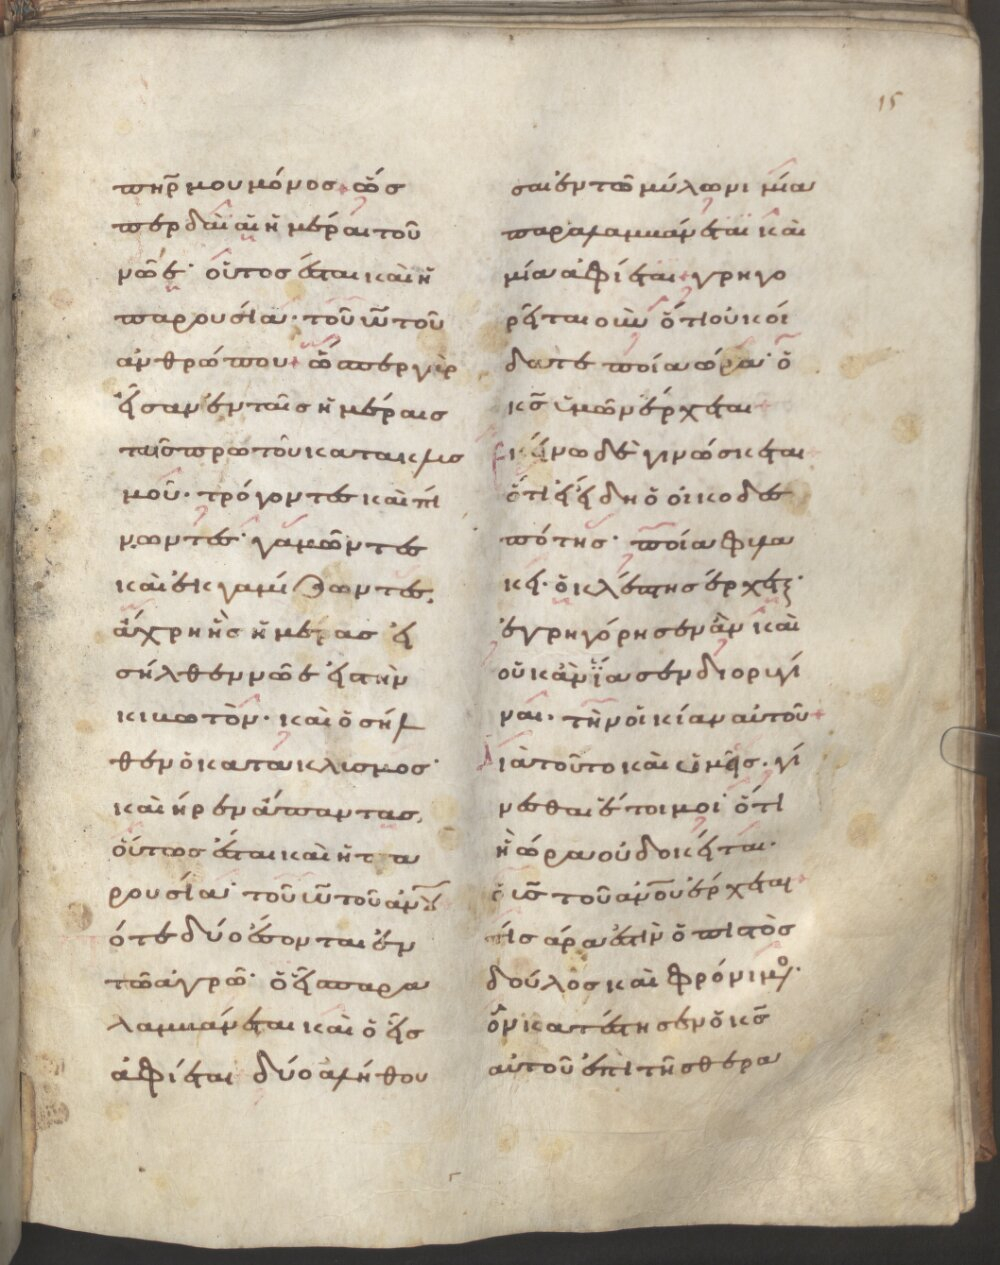 15
πηρ μου μόνος· ὥσ
περ δὲ αἱ ἡμέραι τοῦ
νῶε· οὕτος ἔσται καὶ ἡ
παρουσία· τοῦ ιυ τοῦ
ἀνθρώπου· ὥσπερ γὰρ
ἦσαν ἐν ταῖς ἡμέραις
ταῖς πρω τοῦ κατακλισ
μοῦ· τρόγοντες καὶ πί
νωντες· γαμῶντες
καὶ ἐκγαμίζωντες,
ἄχρη ἧς ἡμέρας εἰ
σήλθεν νῶε εἰς τὴν
κιωτὸν· καὶ ὁ σήλ
θεν ὁ κατακλισμὸς·
καὶ ἦρεν ἅπαντας,
οὕτως ἔσται καὶ ἡ πα
ρουσία· τοῦ ιυ τοῦ ἀνου
ότε δύο ἔσονται ἐν
τῶ ἀγρῶ· ὁ εἷς παρα
λαμπάνεται καὶ ὁ εἷς
ἀφίεται δύο ἀλήθου
σαι ἐν τῶ μύλωνι μία
παραλαμπάνεται καὶ
μία ἀφίεται· γρηγο
ρεῖται οὖν ὅτι οὐκ οἴ
δατε ποία ὥρα· ὁ
κς ὑμῶν ἔρχεται
εκείνω δὲ γινώσκεται
ὅτι εἰ είδη ὁ οἰκοδεσ
πότης· ποία φιλα
κεῖ· ὁ κλέπτης ἔρχεται·
ἐγρηγόρησεν ἂν καὶ
οὐκ ἂν ἴασεν διοριγί
ναι· τὴν οἰκίαν αὐτοῦ
Διὰ τοῦτο καὶ ὑμεῖς· γί
νεσθαι ἕτοιμοι· ὅτι
ἡ ὥρα οὐ δοκεῖται·
ὁ ις τοῦ ἀνου ἔρχεται
τίς ἄρα ἐστὶν ὁ πιστὸς
δούλος καὶ φρόνιμος·
ὃν κατέστησεν ὁ κς
αὐτοῦ ἐπὶ τῆς θερα